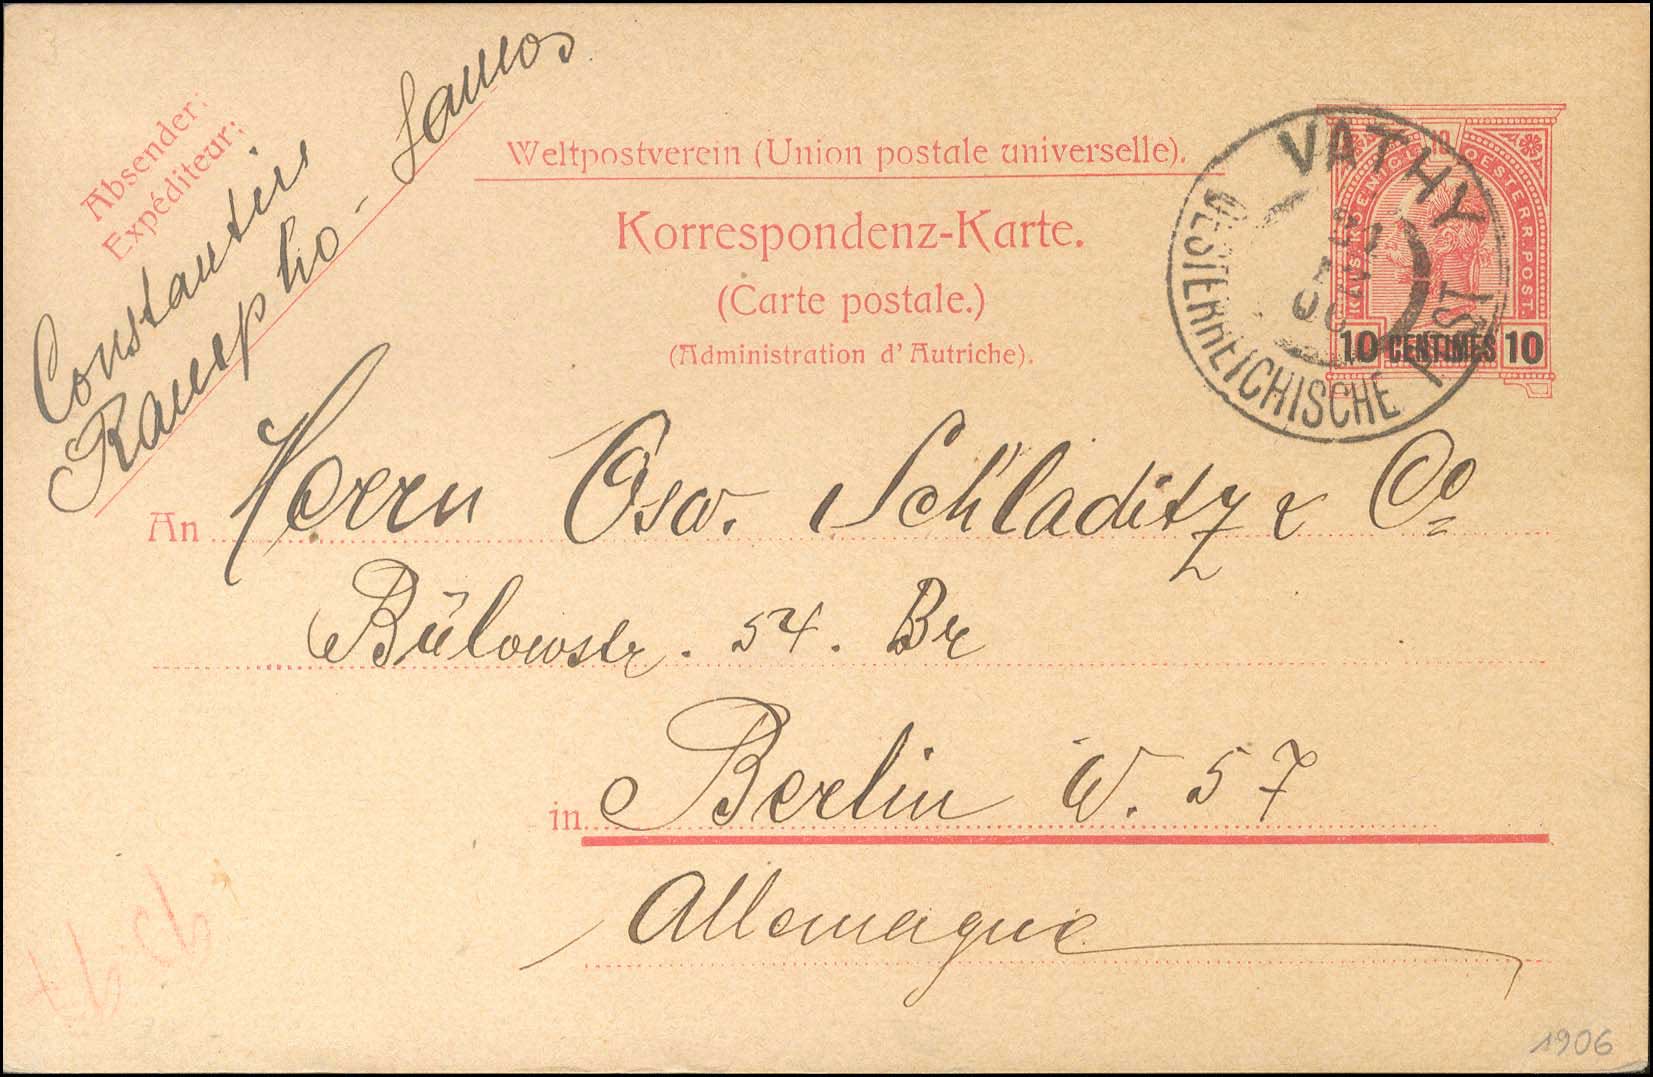 Absender:
Expéditeur:
Constantin
Samos
Weltpostverein (Union postale universelle).
Korrespondenz-Karte.
(Carte postale.)
(Administration d'Autriche).
VATHY
OESTERREICHISCHE POST
10 CENTIMES 10
An Herrn Osw. Schladitz & Co
Bülowstr. 54. Br
in Berlin W. 57
Allemagne
1906